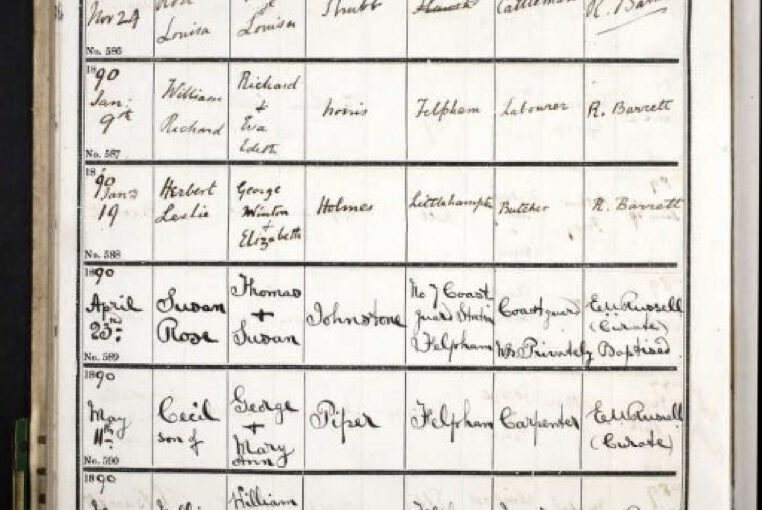 Nov 24
Louisa
Louisa
Cattleman
No. 586
1890
Jan:
9th
William
Richard
Richard
+
Eva
Edith
Norris
Felpham
Labourer
R. Barrett
No. 587
1890
Jany
19
Herbert
Leslie
George
Winton
+
Elizabeth
Holmes
Littlehampton
Butcher
R. Barrett
No. 588
1890
April
23rd:
Susan
Rose
Thomas
+
Susan
Johnstone
No 7 Coast
guard Station
Felpham
Coastguard
E.W. Russell
(Curate)
Privately Baptised
No. 589
1890
May
11th:
Cecil
son of
George
+
Mary
Ann
Piper
Felpham
Carpenter
E.W. Russell
(Curate)
No. 590
1890
William